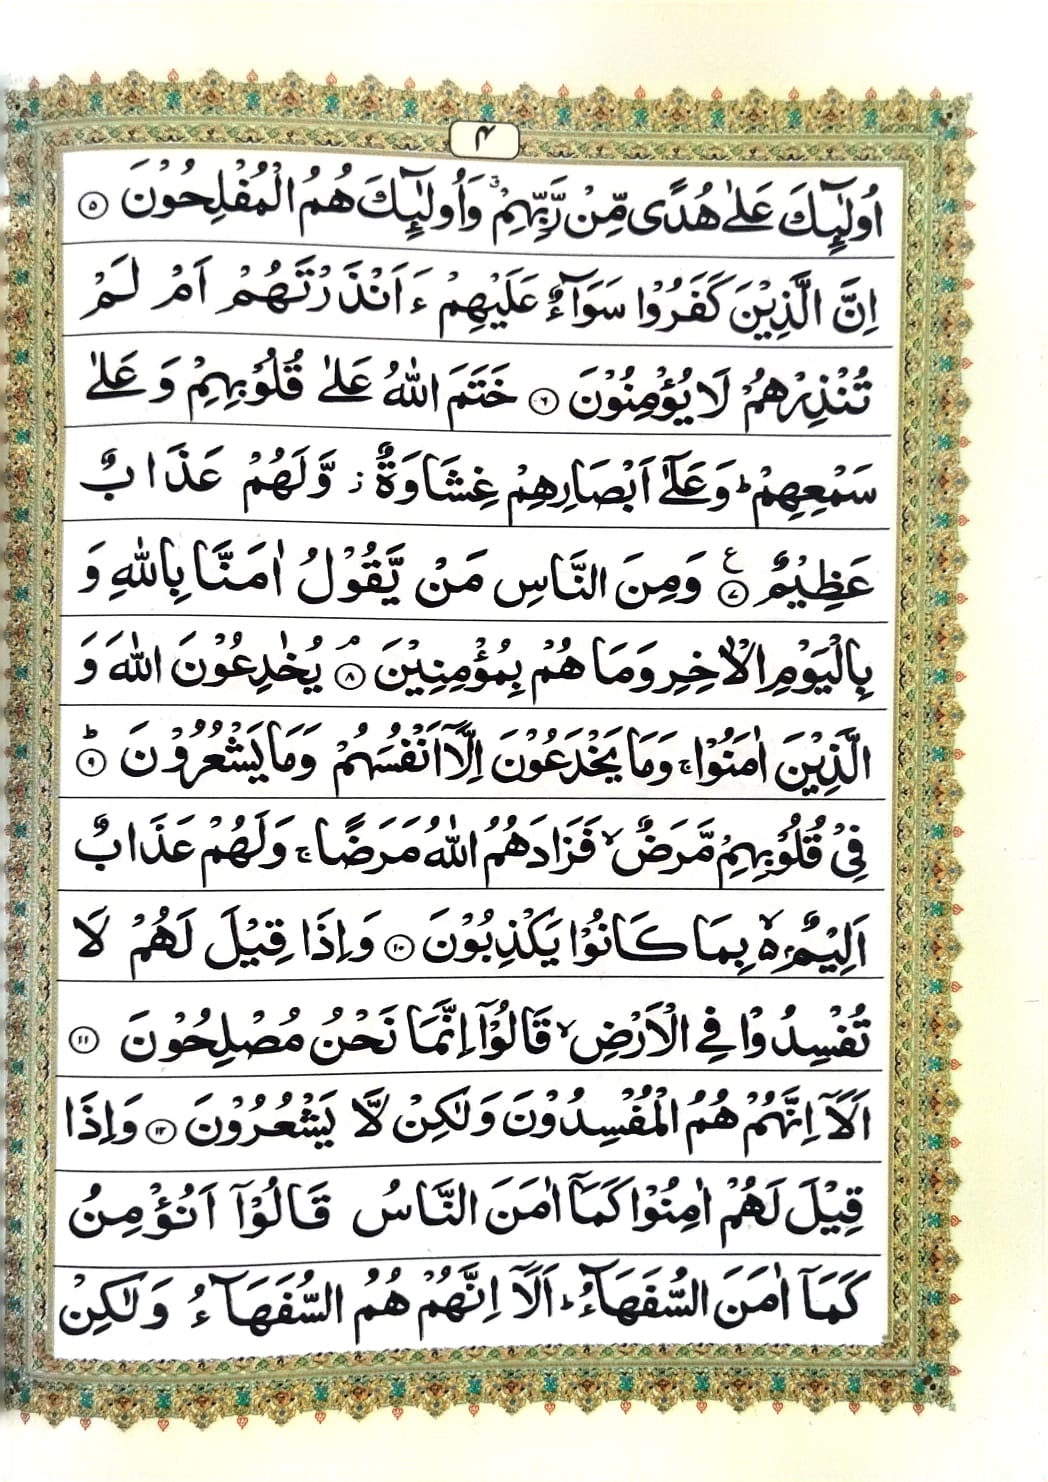 ۴
اُولٰٓئِكَ عَلٰى هُدًى مِّنْ رَّبِّهِمْ ۤ وَاُولٰٓئِكَ هُمُ الْمُفْلِحُوْنَ ۝۵
اِنَّ الَّذِيْنَ كَفَرُوْا سَوَآءٌ عَلَيْهِمْ ءَاَنْذَرْتَهُمْ اَمْ لَمْ
تُنْذِرْهُمْ لَا يُؤْمِنُوْنَ ۝۶ خَتَمَ اللّٰهُ عَلٰى قُلُوْبِهِمْ وَ عَلٰى
سَمْعِهِمْ ؕ وَ عَلٰٓى اَبْصَارِهِمْ غِشَاوَةٌ ز وَّلَهُمْ عَذَابٌ
عَظِيْمٌ ۝۷ ع وَمِنَ النَّاسِ مَنْ يَّقُوْلُ اٰمَنَّا بِاللّٰهِ وَ
بِالْيَوْمِ الْاٰخِرِ وَمَا هُمْ بِمُؤْمِنِيْنَ ۘ ۝۸ يُخٰدِعُوْنَ اللّٰهَ وَ
الَّذِيْنَ اٰمَنُوْا ۚ وَمَا يَخْدَعُوْنَ اِلَّاۤ اَنْفُسَهُمْ وَمَا يَشْعُرُوْنَ ؕ ۝۹
فِىْ قُلُوْبِهِمْ مَّرَضٌ ۙ فَزَادَهُمُ اللّٰهُ مَرَضًا ۚ وَلَهُمْ عَذَابٌ
اَلِيْمٌۢ ۙ۬ بِمَا كَانُوْا يَكْذِبُوْنَ ۝۱۰ وَاِذَا قِيْلَ لَهُمْ لَا
تُفْسِدُوْا فِى الْاَرْضِ ۙ قَالُوْۤا اِنَّمَا نَحْنُ مُصْلِحُوْنَ ۝۱۱
اَلَاۤ اِنَّهُمْ هُمُ الْمُفْسِدُوْنَ وَلٰكِنْ لَّا يَشْعُرُوْنَ ۝۱۲ وَاِذَا
قِيْلَ لَهُمْ اٰمِنُوْا كَمَاۤ اٰمَنَ النَّاسُ قَالُوْۤا اَنُؤْمِنُ
كَمَاۤ اٰمَنَ السُّفَهَآءُ ؕ اَلَاۤ اِنَّهُمْ هُمُ السُّفَهَآءُ وَلٰكِنْ